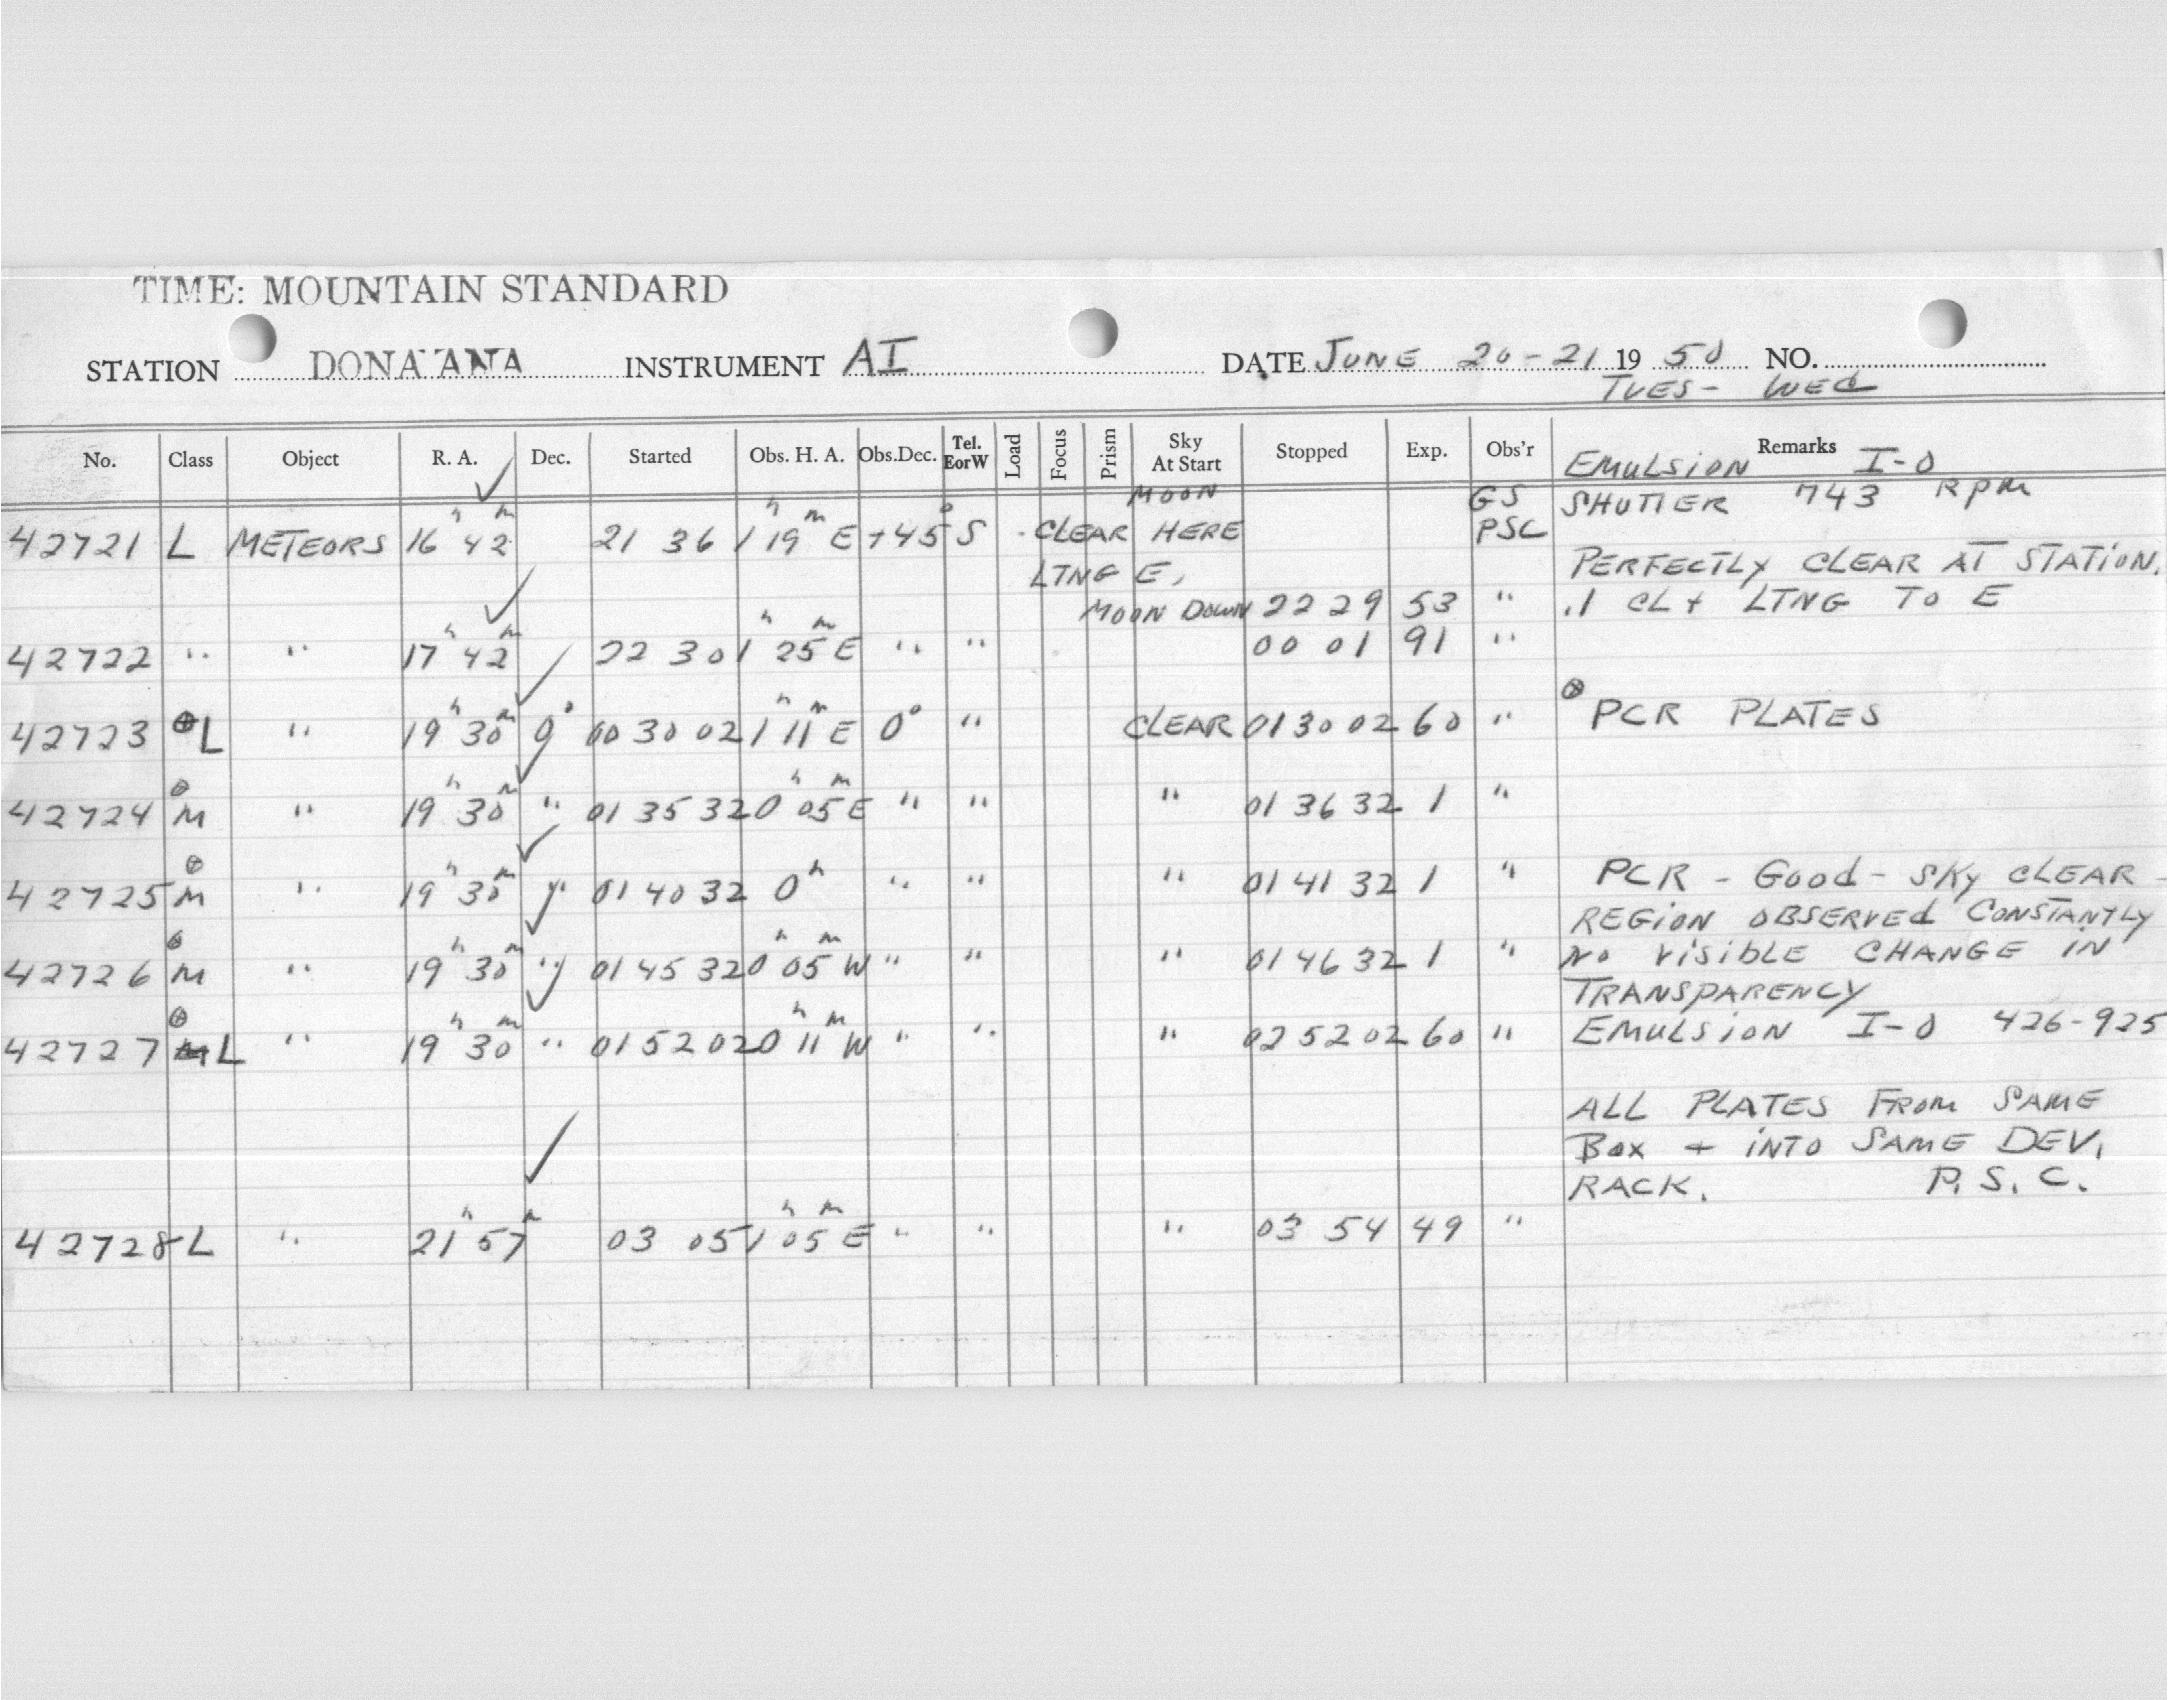 TIME: MOUNTAIN STANDARD
STATION DONA ANA INSTRUMENT AI DATE JUNE 20-21 19 50 NO.
TUES- WED
No. Class Object R. A. Dec. Started Obs. H. A. Obs.Dec. Tel. EorW Load Focus Prism Sky At Start Stopped Exp. Obs'r Remarks
EMULSION I-O
MOON GS SHUTTER 743 RPM
42721 L METEORS 16h 42m 21 36 1h 19m E +45° S CLEAR HERE PSC
LTNG E, PERFECTLY CLEAR AT STATION.
MOON DOWN 22 29 53 " .1 CL + LTNG TO E
42722 " " 17h 42m 22 30 1h 25m E " " 00 01 91 "
42723 ⊕L " 19h 30m 0° 00 30 02 1h 11m E 0° " CLEAR 01 30 02 60 " ⊗ PCR PLATES
42724 ⊕M " 19h 30m " 01 35 32 0h 05m E " " " 01 36 32 1 "
42725 ⊕M " 19h 30m " 01 40 32 0h " " " 01 41 32 1 " PCR - Good - SKY CLEAR -
REGION OBSERVED CONSTANTLY
42726 ⊕M " 19h 30m " 01 45 32 0h 05m W " " " 01 46 32 1 " NO VISIBLE CHANGE IN
TRANSPARENCY
42727 ⊕L " 19h 30m " 01 52 02 0h 11m W " " " 02 52 02 60 " EMULSION I-O 426-925
ALL PLATES FROM SAME
BOX + INTO SAME DEV,
RACK. P. S. C.
42728 L " 21h 57m 03 05 1h 05m E " " " 03 54 49 "